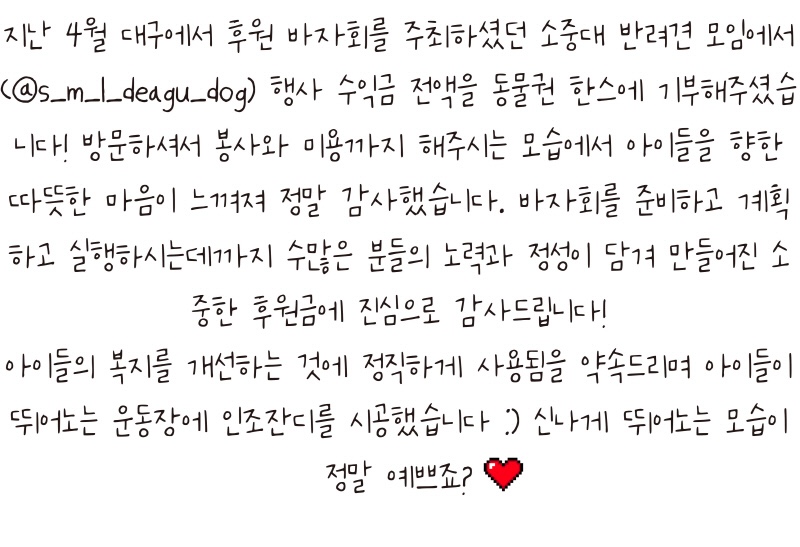 지난 4월 대구에서 후원 바자회를 주최하셨던 소중대 반려견 모임에서
(@s_m_l_deagu_dog) 행사 수익금 전액을 동물권 한스에 기부해주셨습
니다! 방문하셔서 봉사와 미용까지 해주시는 모습에서 아이들을 향한
따뜻한 마음이 느껴져 정말 감사했습니다. 바자회를 준비하고 계획
하고 실행하시는데까지 수많은 분들의 노력과 정성이 담겨 만들어진 소
중한 후원금에 진심으로 감사드립니다!
아이들의 복지를 개선하는 것에 정직하게 사용됨을 약속드리며 아이들이
뛰어노는 운동장에 인조잔디를 시공했습니다 :) 신나게 뛰어노는 모습이
정말 예쁘죠?